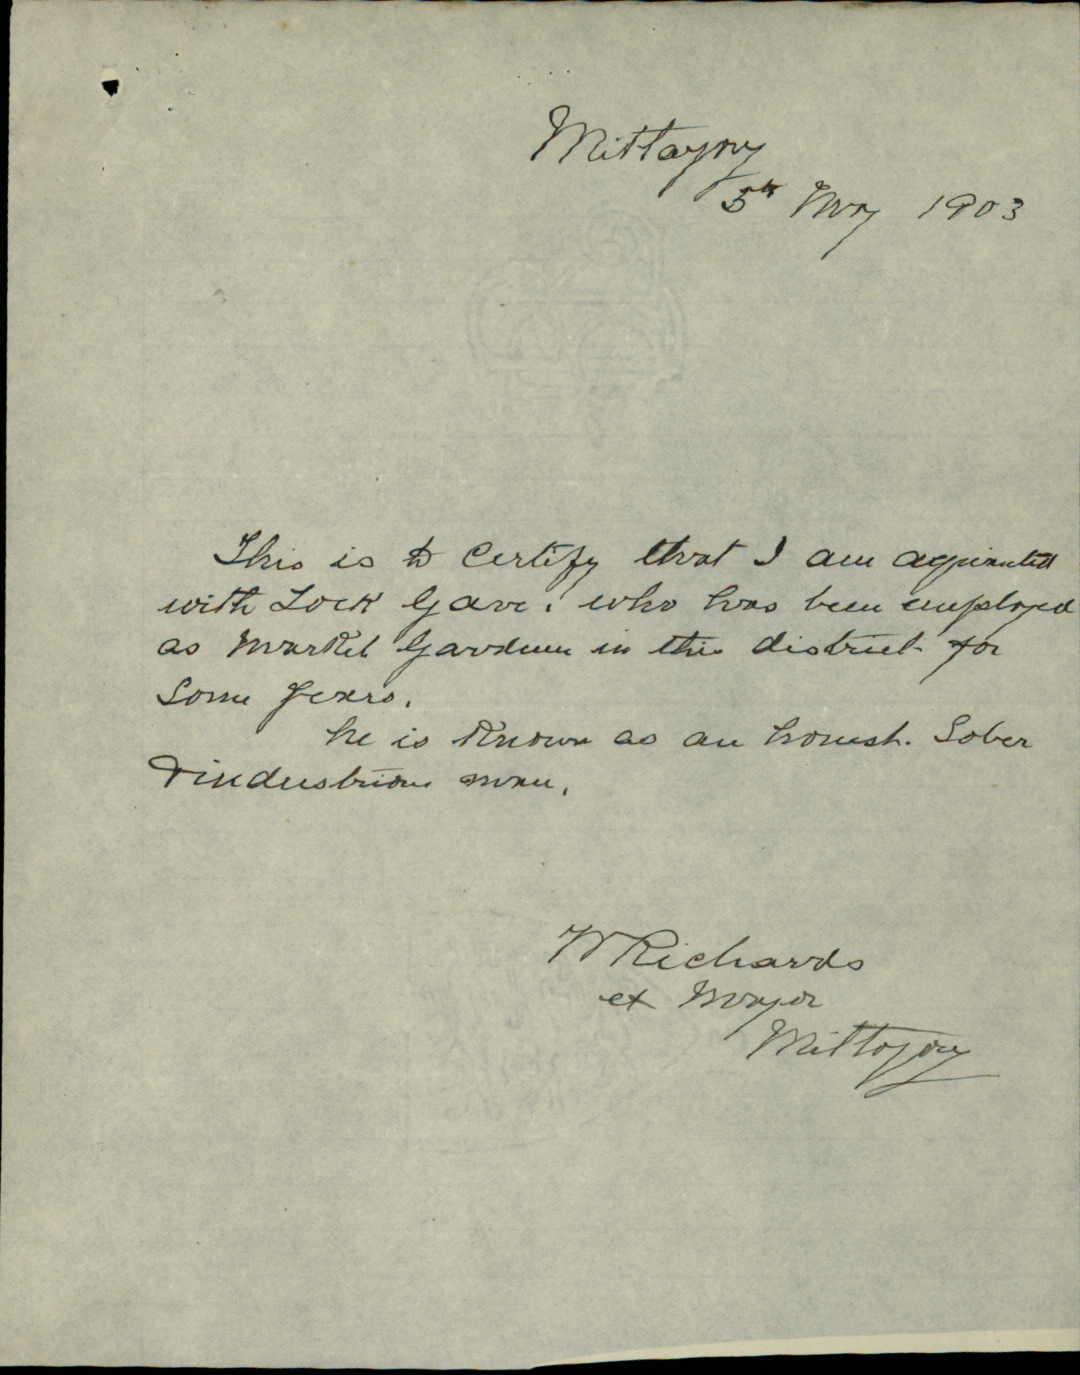 Mittagong
5th May 1903
This is to Certify that I am aquianted
with Lock Gave. who has been employed
as Market Gardener in this district for
Some years.
he is Known as an honest. Sober
& industrious man.
W Richards
ex Mayor
Mittagong